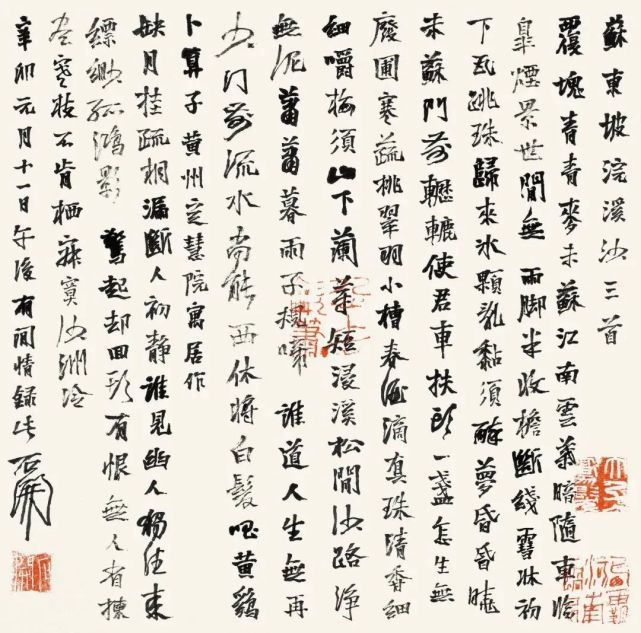 蘇東坡浣溪沙三首
覆塊青青麥未蘇江南雲葉暗隨車臨
皋煙景世間無雨脚半收檐斷綫雪牀初
下瓦跳珠歸來冰顆亂黏須醉夢昏昏曉
未蘇門前轣轆使君車扶頭一盞怎生無
廢圃寒蔬挑翠羽小槽春酒滴真珠清香細
細嚼梅須山下蘭芽短浸溪松間沙路淨
無泥蕭蕭暮雨子規啼誰道人生無再
少門前流水尚能西休將白髮唱黃鷄
卜算子黃州定慧院寓居作
缺月挂疏桐漏斷人初靜誰見幽人獨往來
縹緲孤鴻影驚起却回頭有恨無人省揀
盡寒枝不肯栖寂寞沙洲冷
辛卯元月十一日午後有閒情錄此石開